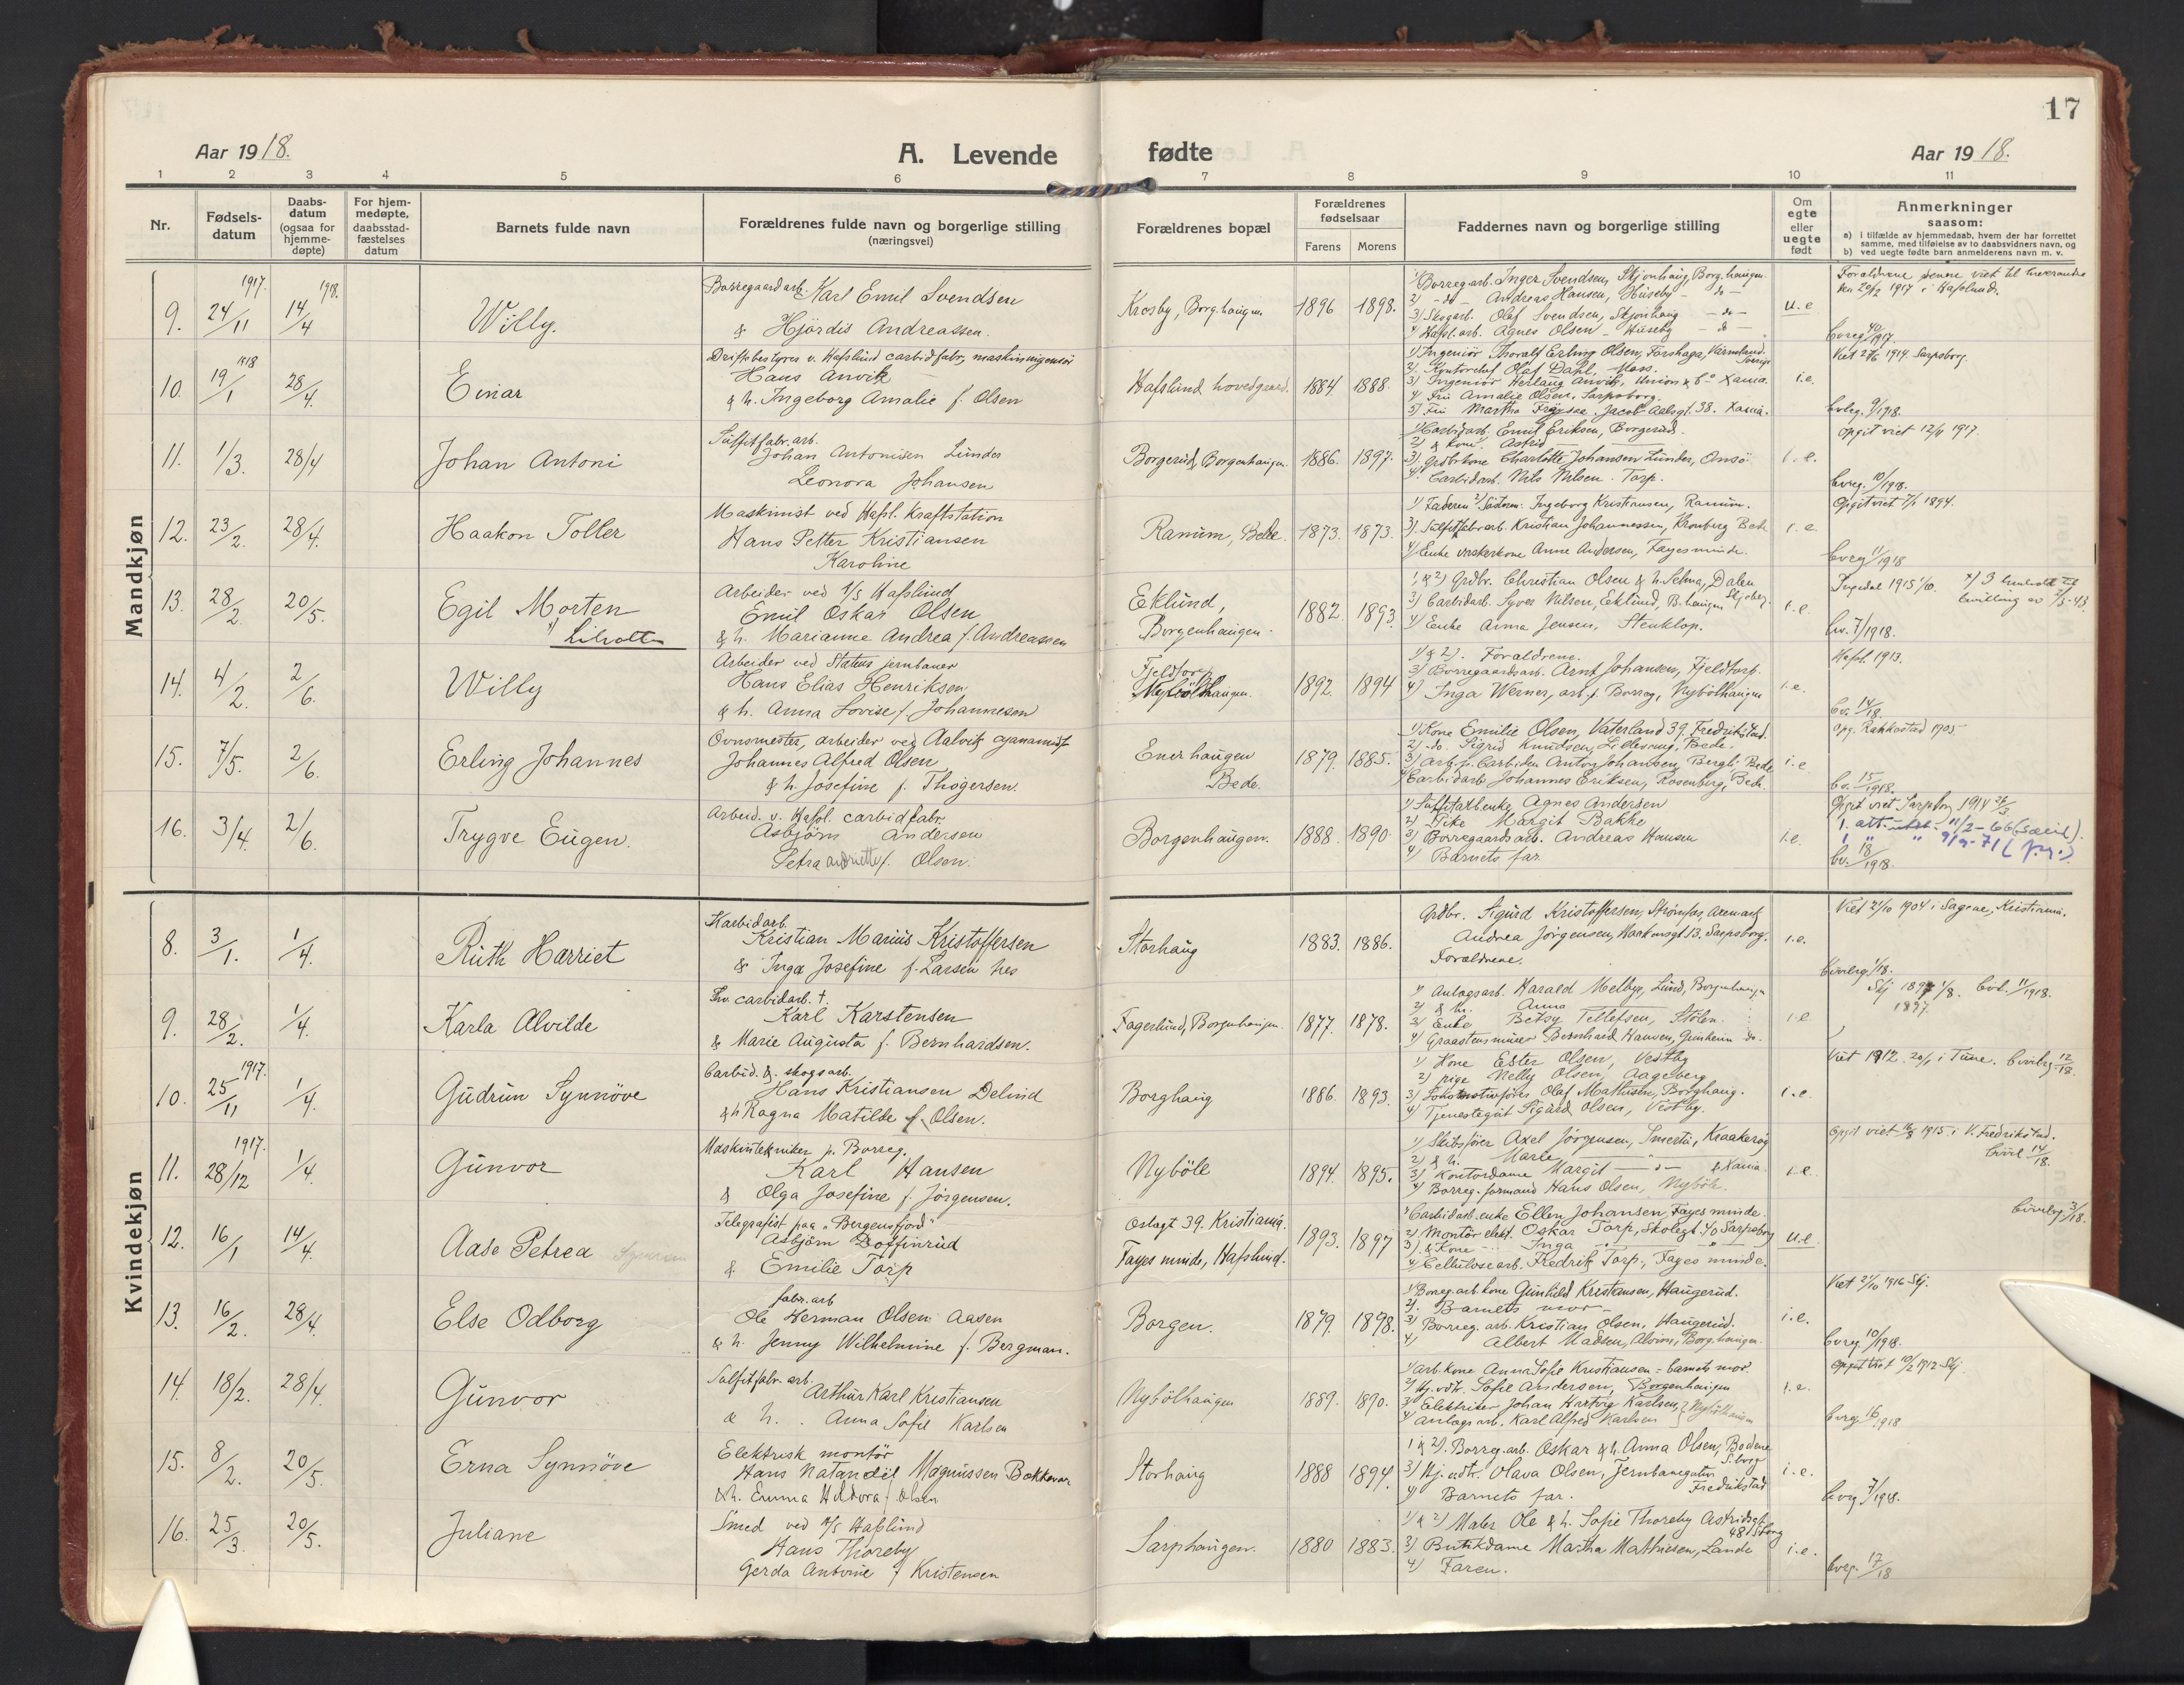 17
Aar 1918.
A. Levende fødte
Aar 1918.
1 2 3 4 5 6 7 8 9 10 11
Nr.
Fødsels-datum
Daabs-datum (ogsaa for hjemme-døpte)
For hjem-medøpte, daabsstad-fæstelses datum
Barnets fulde navn
Forældrenes fulde navn og borgerlige stilling (næringsvei)
Forældrenes bopæl
Forældrenes fødselsaar
Farens Morens
Faddernes navn og borgerlige stilling
Om egte eller uegte født
Anmerkninger saasom:
a) i tilfælde av hjemmedaab, hvem der har forrettet samme, med tilføielse av to daabsvidners navn, og
b) ved uegte fødte barn anmelderens navn m. v.
Mandkjøn
9. 1917. 24/11 1918. 14/4 Willy.
Borregaardarb. Karl Emil Svendsen
& Hjørdis Andreassen.
Krosby, Borg.haugen. 1896 1898.
1) Borreg.arb. Inger Svendsen, Skjonhaug, Borg.haugen.
2) -do- Andreas Hansen, Huseby -do-
3) Skogarb. Olaf Svendsen, Skjonhaug -do-
4) Hafsl.arb. Agnes Olsen - Huseby -do-
u.e
Forældrene senere viet til hverandre
den 20/12 1917 i Hafslund.
10. 1918 19/1 28/4. Einar
Driftsbestyrer v. Hafslund carbidfabr., maskiningeniør
Hans Anvik
& h. Ingeborg Amalie f. Olsen
Hafslund hovedgaard. 1884 1888.
1) Ingeniør Thoralf Erling Olsen, Forshaga, Värmland. Sverige
2) Kontorchef Olaf Dahl, Moss.
3) Ingeniør Herlaug Anvik, Union & Co Xania.
4) Fru Amalie Olsen, Sarpsborg.
5) Fru Martha Frøysaa. Jacob Aalsgt. 38. Xania.
i.e.
Viet 27/6 1914. Sarpsborg.
bvbg. 9/1918.
11. 1/3. 28/4 Johan Antoni
Sulfitfabr.arb.
Johan Antonisen Lunder
Leonora Johansen
Borgerud, Borgenhaugen. 1886. 1897.
1) Carbidarb. Emil Eriksen, Borgerud.
2) & kone Astrid
3) Grdbrkone Charlotte Johansen Lunder, Onsø
4) Carbidarb. Nils Nilsen. Torp.
i.e.
Opgit viet 12/4 1917.
bvreg. 10/1918.
12. 23/2. 28/4. Haakon Toller
Maskinist ved Hafsl. Kraftstation
Hans Petter Kristiansen
Karoline
Ranum, Bede. 1873. 1873.
1) Faderen 2) Søsteren: Ingeborg Kristiansen, Ranum.
3) Sulfitfabr.arb. Kristian Johannessen, Kronberg Bede
4) Enke vaskerkone Anne Andersen, Fayesminde.
i.e.
Opgit viet 7/1 1894.
bvreg 11/1918
13. 28/2. 20/5. Egil Morten
x) Lilholt
Arbeider ved A/S Hafslund
Emil Oskar Olsen
& h. Marianne Andrea f. Andreassen
Eklund,
Borgenhaugen. 1882. 1893.
1) & 2) Grdbr. Christian Olsen & h. Selma, Dalen Skjeberg.
3) Carbidarb. Syver Nilsen, Eklund, B.haugen
4) Enke Anna Jensen, Stenklop.
i.e.
Ingedal 1915 1/10.
x) I henhold til bevilling av 2/3-43.
bv. 7/1918.
14. 4/2. 2/6. Willy
Arbeider ved Statens jernbaner
Hans Elias Henriksen
& h. Anna Lovise f. Johannesen
Fjeldtorp
Nybölhaugen. 1892. 1894
1) & 2). Forældrene.
3) Borregaardsarb. Arnt Johansen, Fjeldtorp.
4) Inga Werner, arb. f. Borreg, Nybölhaugen
i.e.
Hafsl. 1913.
bv. 14/18.
15. 7/5. 2/6. Erling Johannes
Ovnsmester, arbeider ved Aalvik cyanamidf
Johannes Alfred Olsen
& h. Josefine f. Thøgersen.
Enerhaugen
Bede. 1879. 1885.
1) Kone Emilie Olsen, Vaterland 39. Fredrikstad.
2) -do. Sigrid Knudsen, Lillevang, Bede.
3) Arb. p. Carbiden Anton Johansen, Bergli Bede
4) Carbidarb. Johannes Eriksen, Rosenberg, Bede.
i.e
opg. Rakkestad 1905.
bv. 15/1918.
16. 3/4. 2/6. Trygve Eugen.
Arbeid. v. Hafsl. carbidfabr.
Asbjørn Andersen
Petra Andriette f. Olsen.
Borgenhaugen. 1888 1890
1) Sulfitarb.enke Agnes Andersen
2) Pike Margit Bakke
3) Borregaardsarb. Andreas Hansen
4) Barnets far.
i.e.
Opgit viet Sarpsborg 1914
1. att. utst. 11/2-66
1. " " 9/9-71
bv. 18/1918.
Kvindekjøn
8. 3/1. 1/4. Ruth Harriet
Karbidarb.
Kristian Marius Kristoffersen
& Inga Josefine f. Larsen
Storhaug 1883. 1886.
Grdbr. Sigurd Kristoffersen, Strømfoss, Aremark
Andrea Jörgensen, Haakonsgt 13. Sarpsborg.
Forældrene.
i.e.
Viet 21/10 1904 i Sagene, Kristiania.
9. 28/2. 1/4. Karla Alvilde
Fhv. carbidarb. †.
Karl Karstensen
& Marie Augusta f. Bernhardsen.
Fagerlund, Borgenhaugen. 1877. 1878.
1) Anlagsarb. Harald Melbye, Lund, Borgenhaugen
2) & h. Anna
3) Enke Betsy Tellefsen, Stølen.
4) Graastensmurer Bernhard Hansen, Gimheim do.
i.e.
1897.
10. 1917. 25/11 1/4. Gudrun Synnöve
Carbid. & skogsarb.
Hans Kristiansen Delind
& h Ragna Matilde f. Olsen.
Borghaug 1886. 1893.
1) Kone Ester Olsen, Vestby
2) pige Nelly Olsen, Aageberg
3) Lokomotivfører Olaf Mathisen, Borghaug.
4) Tjenestegut Sigurd Olsen, Vestby.
i.e
Viet 1912. 20/1 i Tune.
11. 1917. 28/12 1/4. Gunvor
Maskintekniker p. Borreg.
Karl Hansen
& Olga Josefine f. Jørgensen.
Nyböle 1894. 1895.
1) Skibsfører Axel Jörgensen, Smertu, Kraakerøy
2) & h. Marie
3) Kontordame Margit -"- & Xania.
4) Borreg. formand Hans Olsen, Nyböle.
i.e.
Opgit viet 16/8 1915. i V. Fredrikstad.
12. 16/1 14/4. Aase Petrea
Telegrafist paa "Bergensfjord"
Asbjørn Doffinrud
& Emilie Torp
Oslogt 39. Kristiania.
Fayes minde, Hafslund. 1893. 1897
1) Carbidarb.enke Ellen Johansen, Fayes minde.
2) Montør elekt. Oskar Torp, Skolegt 40 Sarpsborg
3) & Kone Inga
4) Cellulosearb. Fredrik Torp., Fayes minde.
u.e.
13. 16/2. 28/4. Else Odborg
fabr. arb
Ole Herman Olsen Aasen
& h. Jenny Wilhelmine f. Bergman.
Borgen. 1879. 1898.
1) Borreg.arb. kone Gunhild Kristiansen, Haugerud.
2) Barnets mor
3) Borreg. arb. Kristian Olsen, Haugerud.
4) Albert Madsen, Alvim, Borg.haugen.
i.e.
Viet 21/10 1916 Skj.
bvreg 10/1918.
14. 18/2. 28/4. Gunvor
Sulfitfabr. arb.
Arthur Karl Kristiansen
& h. Anna Sofie Karlsen
Nybölhaugen 1889. 1890.
1) Arb.kone Anna Sofie Kristiansen = barnets mor
2) Hj. vdtr. Sofie Andersen, Borgenhaugen
3) Elektriker Johan Hartvig Karlsen,
4) Anlagsarb. Karl Alfred Karlsen } Nybölhaugen
i.e.
Opgit viet 10/2 1912 Skj.
bvreg 16/1918
15. 8/2. 20/5. Erna Synnöve
Elektrisk montör
Hans Natandil Magnussen Bakkevar
& h. Emma Haldora f. Olsen
Storhaug 1888 1894.
1 & 2). Borreg.arb. Oskar & h. Anna Olsen, Bodene S.borg
3) Hj. vdtr. Olava Olsen, Jernbanegaten Fredrikstad
4) Barnets far.
i.e.
bvreg 7/1918.
16. 25/3. 20/5. Juliane
Smed ved A/S Hafslund
Hans Thoreby
Gerda Antonie f Kristensen
Sarphaugen. 1880 1883.
1) & 2) Maler Ole & h. Sofie Thoreby Astridsgt 48 S.borg
3) Butikdame Martha Mathiesen, Lande
4) Faren.
i.e.
bvreg. 17/18